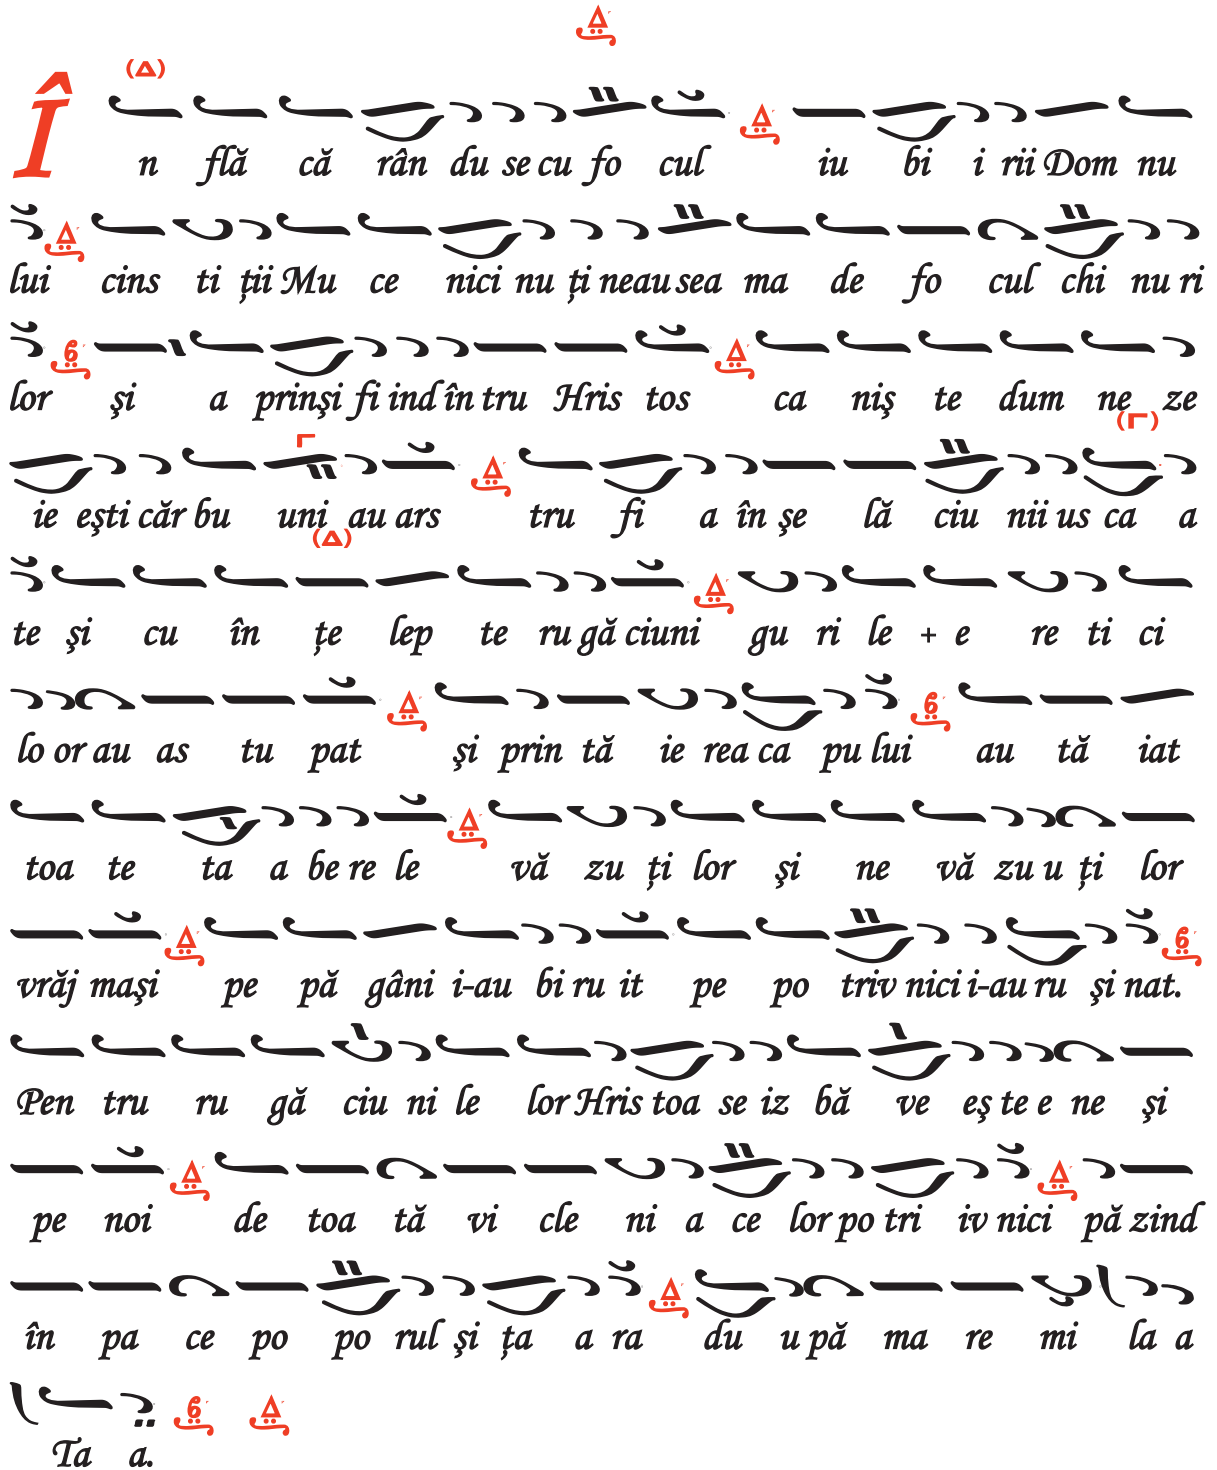 În flă că rân du se cu fo cul iu bi i rii Dom nu
lui cins ti ţii Mu ce nici nu ţi neau sea ma de fo cul chi nu ri
lor şi a prinşi fi ind în tru Hris tos ca niş te dum ne ze
ie eşti căr bu uni au ars tru fi a în şe lă ciu nii us ca a
te şi cu în ţe lep te ru gă ciuni gu ri le + e re ti ci
lo or au as tu pat şi prin tă ie rea ca pu lui au tă iat
toa te ta a be re le vă zu ţi lor şi ne vă zu u ţi lor
vrăj maşi pe pă gâni i-au bi ru it pe po triv nici i-au ru şi nat.
Pen tru ru gă ciu ni le lor Hris toa se iz bă ve eş te e ne şi
pe noi de toa tă vi cle ni a ce lor po tri iv nici pă zind
în pa ce po po rul şi ţa a ra du u pă ma re mi la a
Ta a.